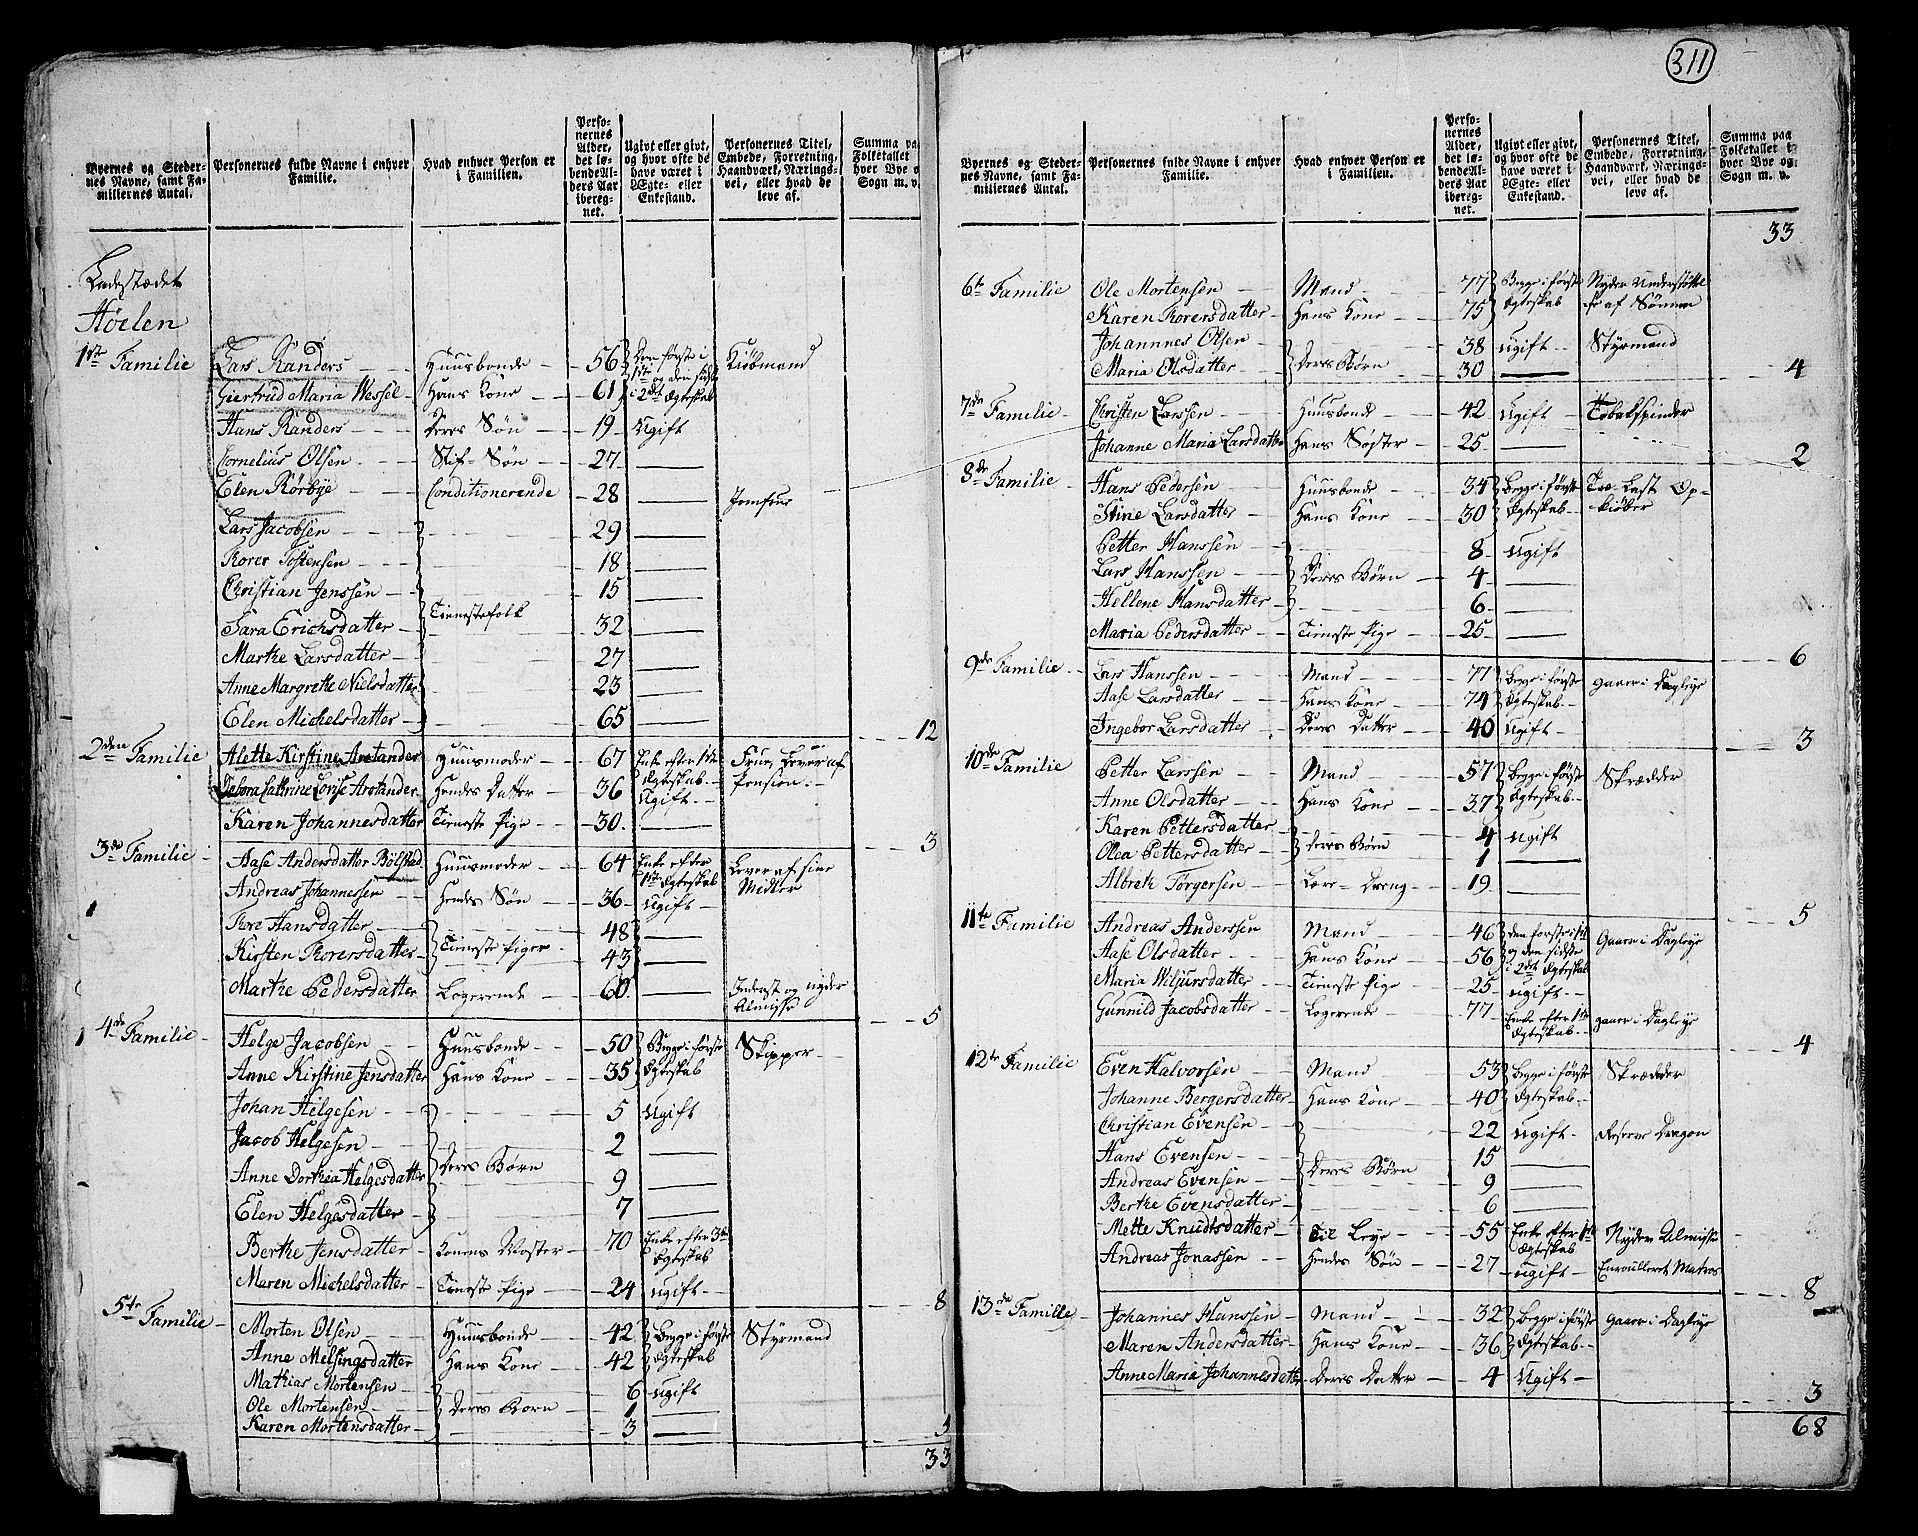 311
Byernes og Steder-
nes Navne, samt Fa-
miliernes Antal.
Personernes fulde Navne i enhver
Familie.
Hvad enhver Person er
i Familien.
Perso-
nernes
Alder,
det lø-
bende Al-
ders Aar
iberegnet.
Ugivt eller givt,
og hvor ofte de
have været i
Ægte- eller
Enkestand.
Personernes Titel,
Embede, Forretning,
Haandværk, Nærings-
vei, eller hvad de
leve af.
Summa paa
Folketallet i
hver Bye og
Sogn m. v.
Ladestædet
Høelen
1ste Familie Lars Randers Huusbonde 56 Den første i 1ste og den sidste i 2det Ægteskab Kiöbmand
Giertrud Maria Wessel Hans Kone 61
Hans Randers Deres Søn 19 Ugift
Cornelius Olsen Stif-Søn 27
Elen Rørbye Conditionerende 28 Jomfrue
Lars Jacobsen 29
Rorer Tostensen 18
Christian Jenssen 15
Tienestefolk
Sara Erichsdatter 32
Marthe Larsdatter 27
Anne Margrethe Nielsdatter 23
Elen Michelsdatter 65
12
2den Familie Alette Kirstine Arctander Huusmoder 67 Enke efter 1ste Ægteskab Frue, Lever af Pension
Debora Cathrine Lovise Arctander Hendes Datter 36 Ugift
Karen Johannesdatter Tieneste Pige 30
3
3de Familie Aase Andersdatter Bölstad Huusmoder 64 Enke efter 1ste Ægteskab Lever af sine Midler
Andreas Johannessen Hendes Søn 36 Ugift
Tore Hansdatter 48
Tieneste Piger
Kirsten Rorersdatter 43
Marthe Pedersdatter Logerende 60 Inderst og nyder Almisse
5
4de Familie Helge Jacobsen Huusbonde 50 Begge i første Ægteskab Skipper
Anne Kirstine Jensdatter Hans Kone 35
Johan Helgesen 5 Ugift
Jacob Helgesen 2
Deres Børn
Anne Dorthea Helgesdatter 9
Elen Helgesdatter 7
Berthe Jensdatter Konens Moster 70 Enke efter 3die Ægteskab
Maren Michelsdatter Tieneste Pige 24 Ugift
8
5te Familie Morten Olsen Huusbonde 42 Begge i første Ægteskab Styrmand
Anne Melsingsdatter Hans Kone 42
Mathias Mortensen 6 Ugift
Ole Mortensen Deres Børn 1
Karen Mortensdatter 3
5
33
Byernes og Steder-
nes Navne, samt Fa-
miliernes Antal.
Personernes fulde Navne i enhver
Familie.
Hvad enhver Person er
i Familien.
Perso-
nernes
Alder,
det lø-
bende Al-
ders Aar
ibereg-
net.
Ugivt eller givt,
og hvor ofte de
have været i
Ægte- eller
Enkestand.
Personernes Titel,
Embede, Forretning,
Haandværk, Nærings-
vei, eller hvad de
leve af.
Summa paa
Folketallet i
hver Bye og
Sogn m. v.
33
6te Familie Ole Mortensen Mand 77 Begge i første Ægteskab Nyder Understøttelse af Sønnen
Karen Rorersdatter Hans Kone 75
Johannnes Olsen 38 Ugift Styrmand
Deres Børn
Maria Olsdatter 30
4
7de Familie Christen Larssen Huusbonde 42 Ugift Tobakspinder
Johanne Maria Larsdatter Hans Søster 25
2
8de Familie Hans Pedersen Huusbonde 34 Begge i første Ægteskab Træ Last Op-kiøber
Stine Larsdatter Hans Kone 30
Petter Hanssen 8 Ugift
Lars Hanssen Deres Børn 4
Hellene Hansdatter 6
Maria Pedersdatter Tieneste Pige 25
6
9de Familie Lars Hanssen Mand 77 Begge i første Ægteskab Gaaer i Dagleye
Aase Larsdatter Hans Kone 74
Ingebor Larsdatter Deres Datter 40 Ugift
3
10de Familie Petter Larssen Mand 57 Begge i første Ægteskab Skrædder
Anne Olsdatter Hans Kone 37
Karen Pettersdatter 4 Ugift
Deres Børn
Olea Pettersdatter 1
Albreth Törgersen Lære-Dreng 19
5
11te Familie Andreas Anderssen Mand 46 Den første i 1ste og den sidste i 2det Ægteskab Gaaer i Dagleye
Aase Olsdatter Hans Kone 56
Maria Wiljursdatter Tieneste Pige 25 Ugift
Gunnild Jacobsdatter Logerende 77 Enke efter 1ste Ægteskab Gaaer i Dagleye
4
12te Familie Even Halvorsen Mand 53 Begge i første Ægteskab Skrædder
Johanne Bergersdatter Hans Kone 40
Christian Evensen 22 Ugift Reserve Dragon
Hans Evensen 15
Deres Børn
Andreas Evensen 9
Berthe Evensdatter 6
Mette Knudtsdatter Til Leye 55 Enke efter 1ste Ægteskab Nyder Almisse
Andreas Jonassen Hendes Søn 27 Ugift Enroulleret Matros
8
13de Famille Johannes Hanssen Mand 32 Begge i første Ægteskab Gaaer i Dagleye
Maren Andersdatter Hans Kone 36
Anne Maria Johannesdatter Deres Datter 4 Ugift
3
68